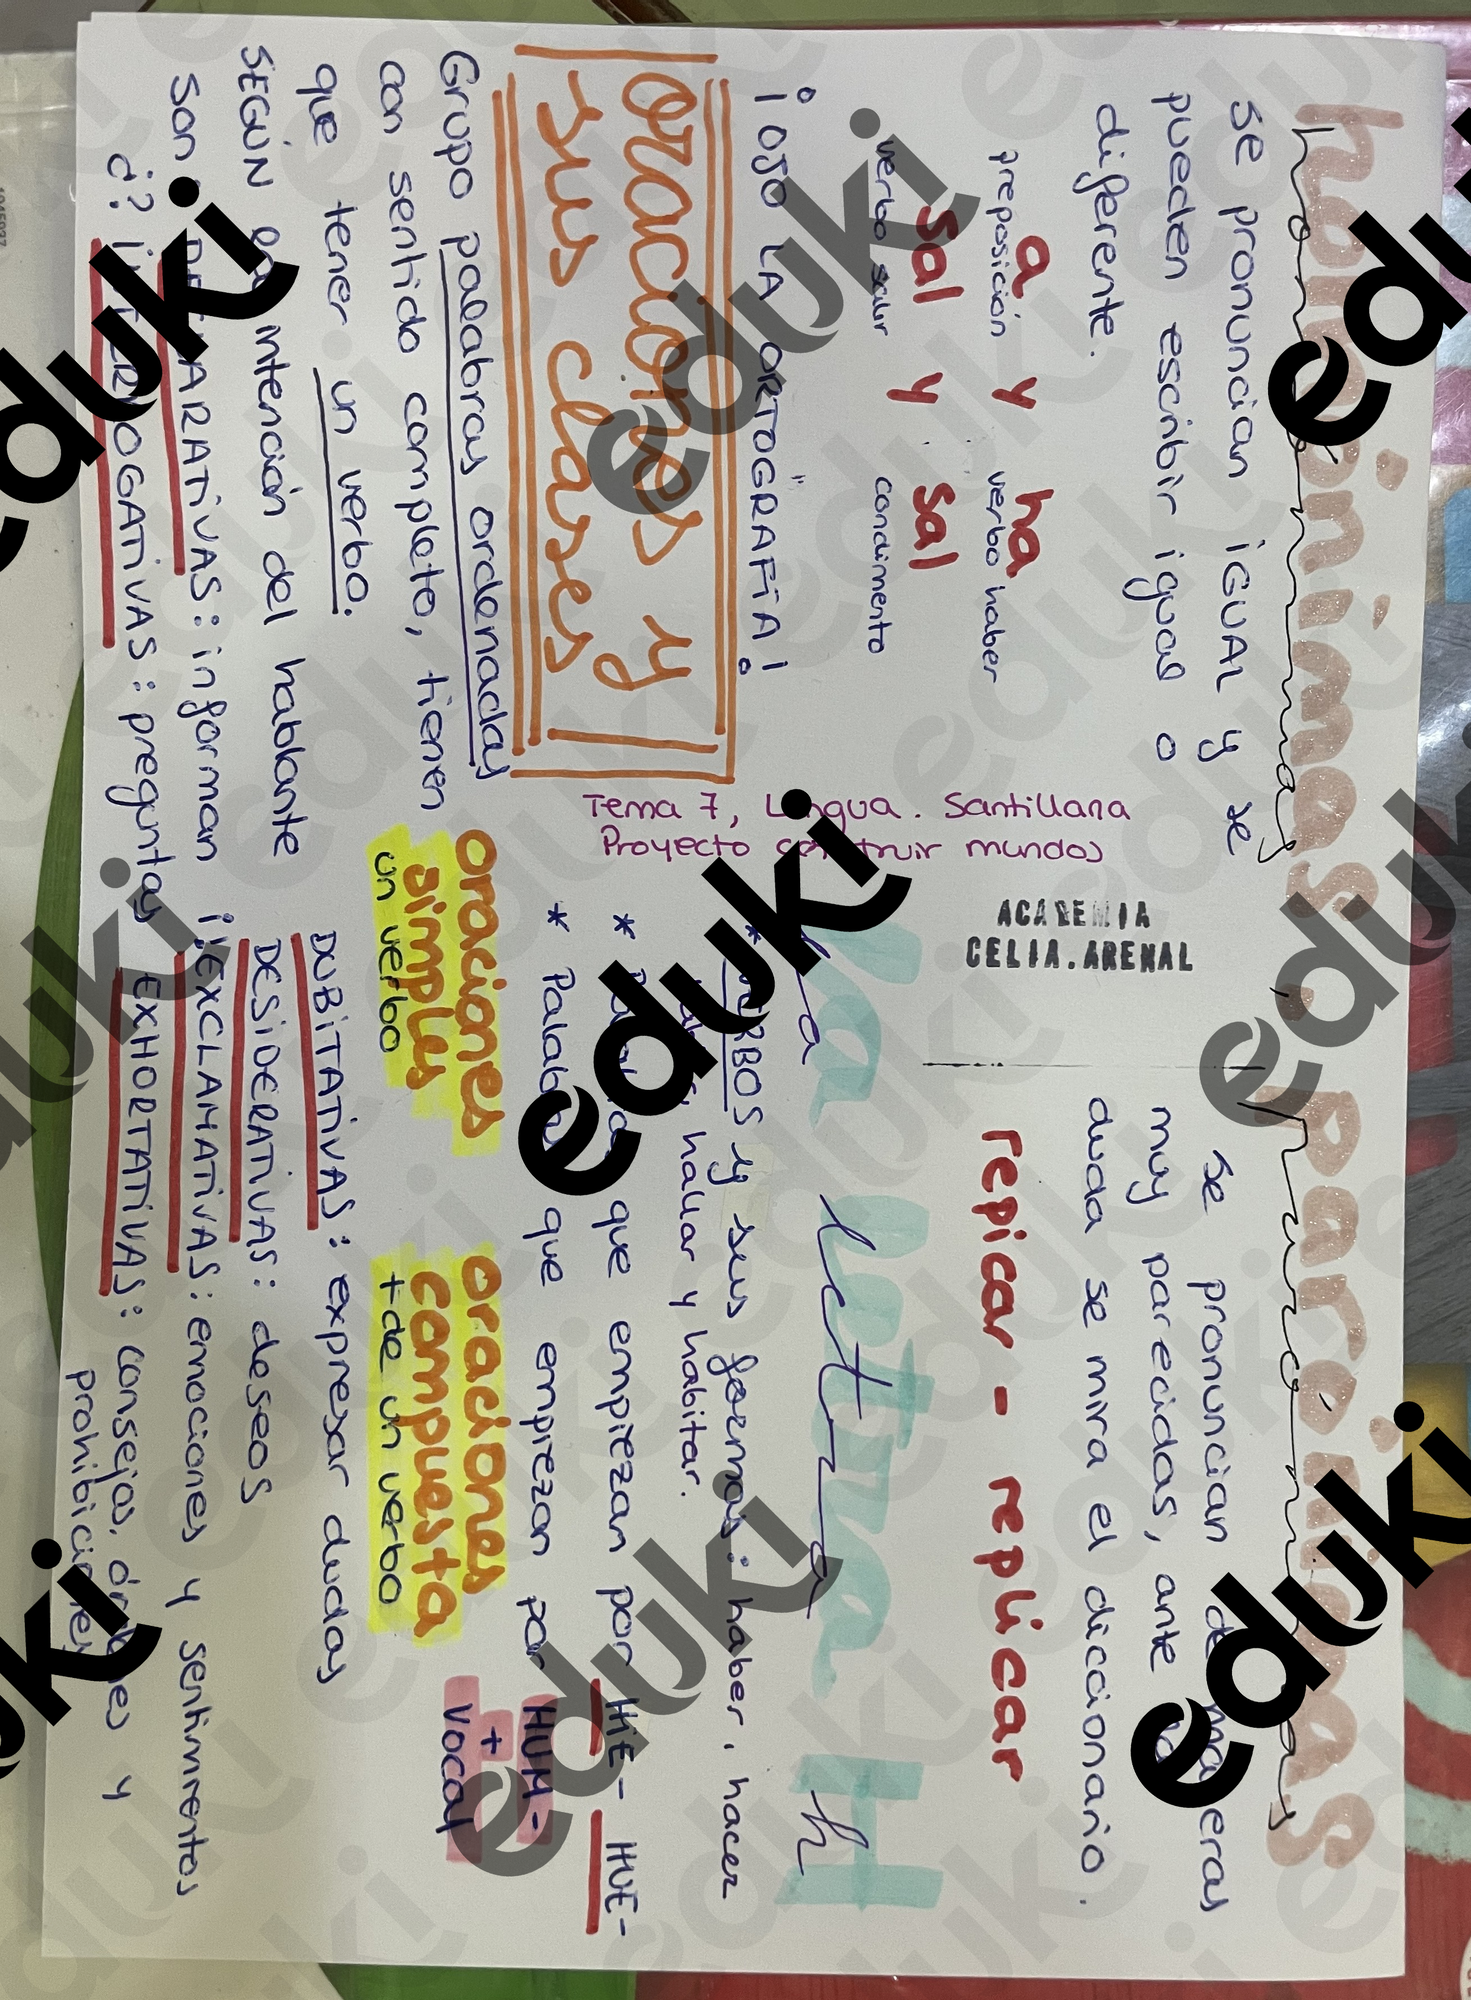 homónimas
homónimas
se pronuncian iGUAL y se
pueden escribir igual o
diferente.
a y ha
preposición verbo haber
sal y sal
verbo salir condimento
¡OJO LA ORTOGRAFÍA!
ACADEMIA
CELIA.ARENAL
parónimas
parónimas
se pronuncian de maneras
muy parecidas, ante
duda se mira el diccionario.
repicar - replicar
Tema 7, Lengua. Santillana
Proyecto construir mundos
la letra H
la letra h
* VERBOS y sus formas: haber, hacer
hallar y habitar.
* Palabras que empiezan por HIE- HUE-
* Palabras que empiezan por HUM-
+
vocal
oraciones y
sus clases
Grupo palabras ordenadas
con sentido completo, tienen
que tener un verbo.
oraciones
simples
un verbo
oraciones
compuesta
+de un verbo
SEGÚN la intención del hablante
son:
DECLARATIVAS: informan
¿? iNTERROGATIVAS: preguntas
DUBITATIVAS: expresar dudas
DESIDERATIVAS: deseos
¡! EXCLAMATIVAS: emociones y sentimientos
EXHORTATIVAS: consejos, órdenes y
prohibiciones
eduki
eduki
eduki
eduki
eduki
eduki
eduki
eduki
eduki